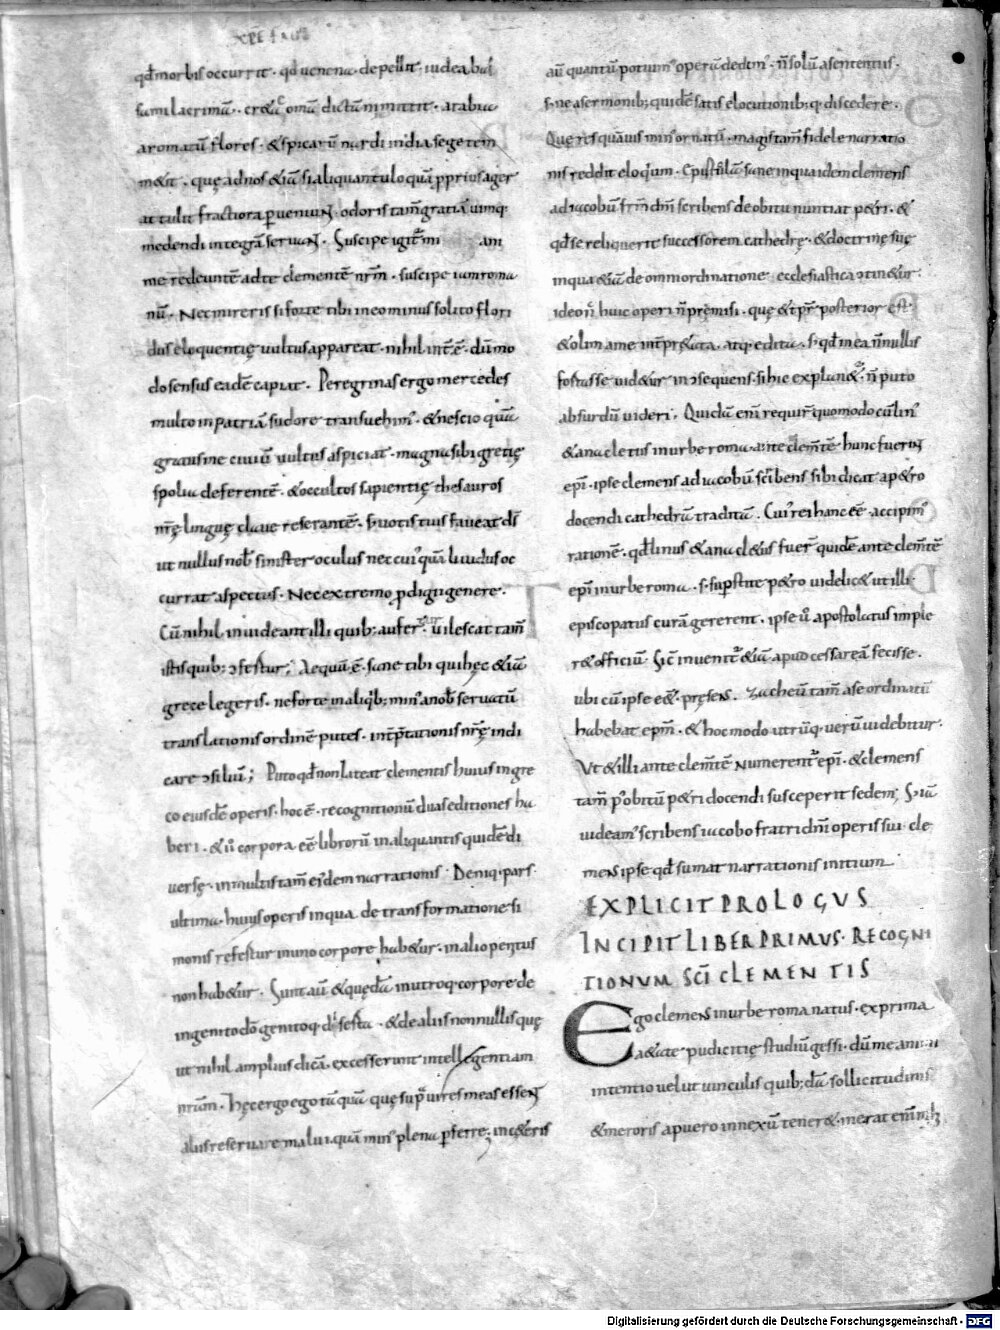 XPE FAUE
qd morbis occurrit · qd uenena depellit; iudea bal
sami lacrimā · creta comā dictamni mittit · arabia
aromatū flores · & spicarū nardi india segetem
metit · quę ad nos &iā si aliquantulo quā pprius ager
attulit fractiora peruenium · odoris tam gratiā uimq
medendi integrā seruant · Suscipe igit mi ani
me redeuntē ad te clementē nrm · suscipe iam roma
nū · Nec mireris si forte tibi in eo minus solito flori
dus eloquentię uultus appareat · nihil int̄ē · dū mo
do sensus eadē capiat · Peregrinas ergo mercedes
multo in patriā sudore transuehim · & nescio quā
gratus me ciuiū uultus aspiciat · magna sibi gretię
spolia deferentē · & occultos sapientię thesauros
nrę linguę claue referantē · S; uotis tuis faueat ds
ut nullus nob sinister oculus nec cui quā liuidus oc
currat aspectus · Nec extremo pdigii genere ·
Cū nihil inuideant illi quib; aufert uilescat tam
istis quib; ɔfestur; Aequū ē sane tibi qui hęc &iā
grece legeris · ne forte in aliqb; min a nob seruatū
translationis ordinē putes · int̄ptationis nrę indi
care ɔsiliū; Puto qd non liteat clementis huius in gre
co eiusdē operis · hoc ē · recognitionū duas editiones ha
beri · & ii corpora eē librorū in aliquantis quidē di
uersę · in multis tam eidem narrationis · Deniq pars
ultima huius operis in qua de transformatione si
monis refestur in uno corpore hab&ur · in alio penitus
non hab&ur · Sunt aū & quędā in utroq corpore de
ingenito dō genitoq disesta · & de aliis nonnullis quę
ut nihil amplius dicā excesserunt intellegentiam
nram · Hęc ergo ego tā quā quę sup uires meas essent
aliis reseruare malui quā min plena pferre; in c&eris
aū quantū potuim operā dedim · n̄ solū a sententiis ·
s; ne a sermonib; quidē satis elocutionib; q; discedere ·
Quę res quāuis min ornatū · magis tam fidele narratio
nis reddit eloquiū · Epistolā sane in qua idem clemens
ad iacobū frm dni scribens de obitu nuntiat p&ri · &
qd se reliquerit successorem cathedrę · & doctrinę suę
in qua &iā de omni ordinatione ecclesiastica ɔtin&ur ·
ideo n̄ huic operi n̄ pręmisi · quę & tpr posterior est ·
& olim a me int̄pr&ata · atq edita · S; qd in ea nonnullis
fortasse uid&ur inɔsequens · si hic explan&r · n̄ puto
absurdū uideri · Quidā eni requir quomodo cū lin
& anacletus in urbe roma ante clemtē hunc fuerint
epi · ipse clemens ad iacobū scribens sibi dicat a p&ro
docendi cathedrā traditā · Cui rei hanc eē accipim
rationē · qd linus & anacletus fuer quidē ante clemtē
epi in urbe roma · s; supstite p&ro uidelic& ut illi
episcopatus curā gererent · ipse u apostolatus imple
r& officiū · Sic inuenit &iā apud cessareā fecisse ·
ubi cū ipse e&ę pręsens · Zacheū tam a se ordinatū
habebat epm · & hoc modo utrūq uerū uidebitur ·
Ut & illi ante clemtē numerent epi · & clemens
tam p obitū p&ri docendi susceperit sedem; S; iā
uideam scribens iacobo fratri dni operis sui cle
mens ipse qd sumat narrationis initium ·
EXPLICIT PROLOGUS
INCIPIT LIBER PRIMUS · RECOGNI
TIONUM SCI CLEMENTIS
Ego clemens in urbe roma natus · ex prima
a&ate pudicitię studiū gessi · dū me animi
intentio uelut uinculis quib; dā sollicitudinis
& meroris a puero innexū tener& · inerat enim mihi
Digitalisierung gefördert durch die Deutsche Forschungsgemeinschaft - DFG